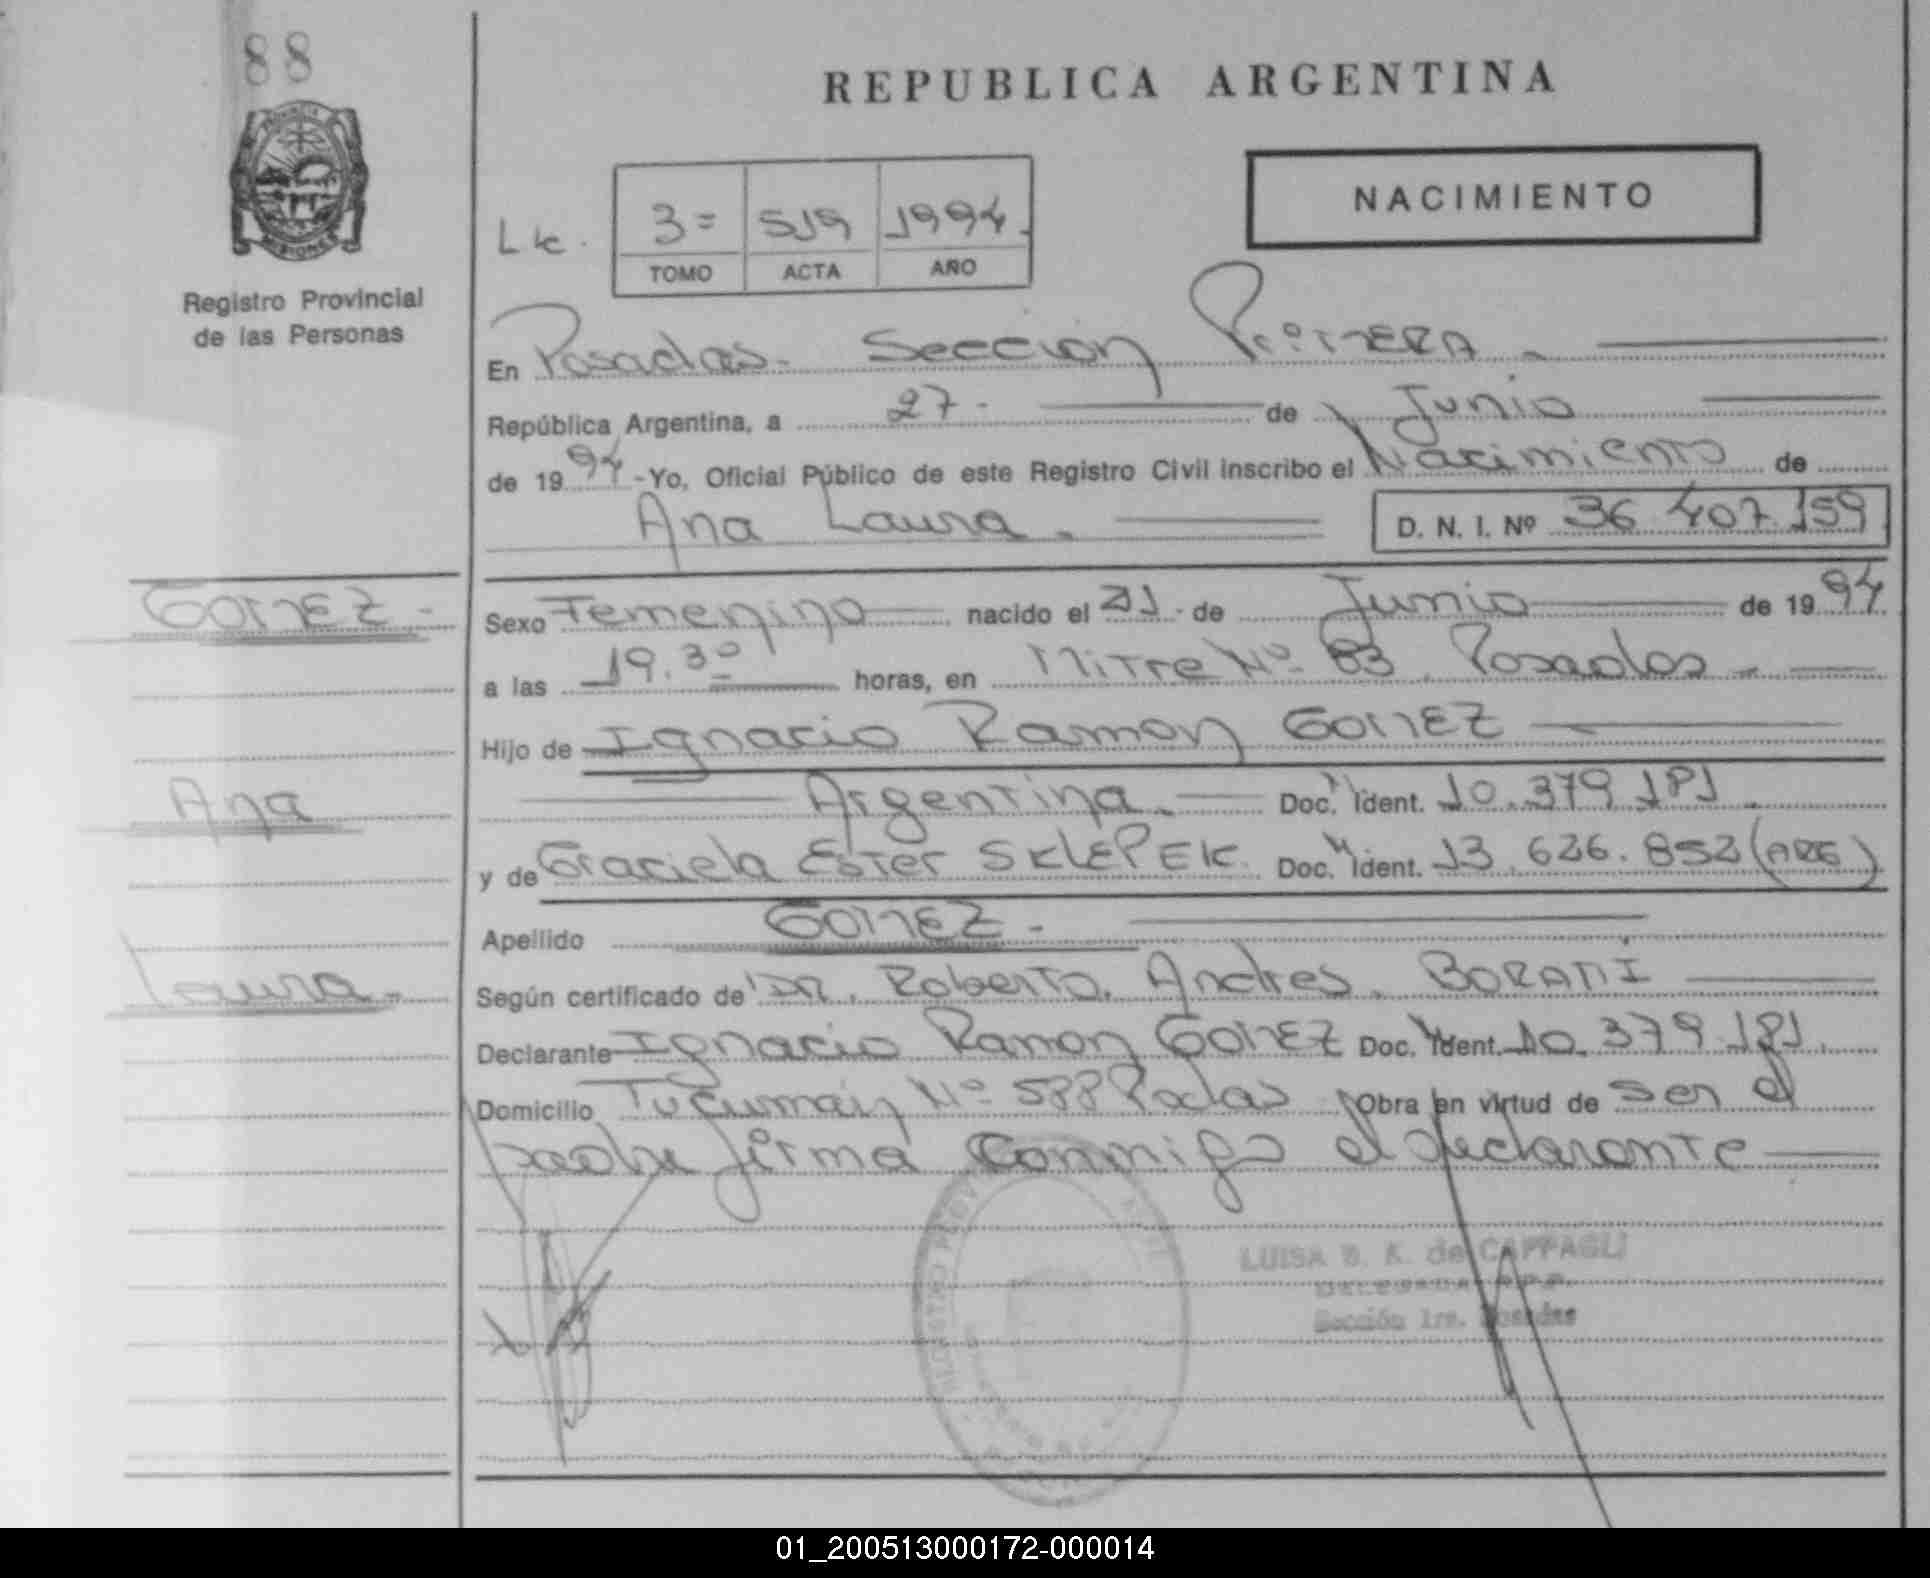 88
REPUBLICA ARGENTINA
NACIMIENTO
PROVINCIA
MISIONES
3= 519 1994.
TOMO ACTA AÑO
Registro Provincial
de las Personas
En Posadas. Sección Primera.
República Argentina, a 27. de Junio
de 1994 - Yo, Oficial Público de este Registro Civil inscribo el Nacimiento de
Ana Laura. D. N. I. Nº 36 407.159
GOMEZ. Sexo Femenino nacido el 21. de Junio de 1994
a las 19.30 horas, en Mitre Nº 83. Posadas.
Hijo de Ignacio Ramon GOMEZ
Ana Argentina. Doc. Ident. 10.379.181.
y de Graciela Ester SKLEPEK. Doc. Ident. 13.626.852 (ARG)
Apellido GOMEZ.
Laura. Según certificado de DR. Roberto. Andres.
Declarante Ignacio Ramon GOMEZ Doc. Ident. 10.379.181.
Domicilio Tucumán Nº 588 Posdas Obra en virtud de ser el
padre firma conmigo el declarante
LUISA B. K. de CAPPAGLI
DELEGADA R.P.P.
Sección 1ra. Posadas
01_200513000172-000014